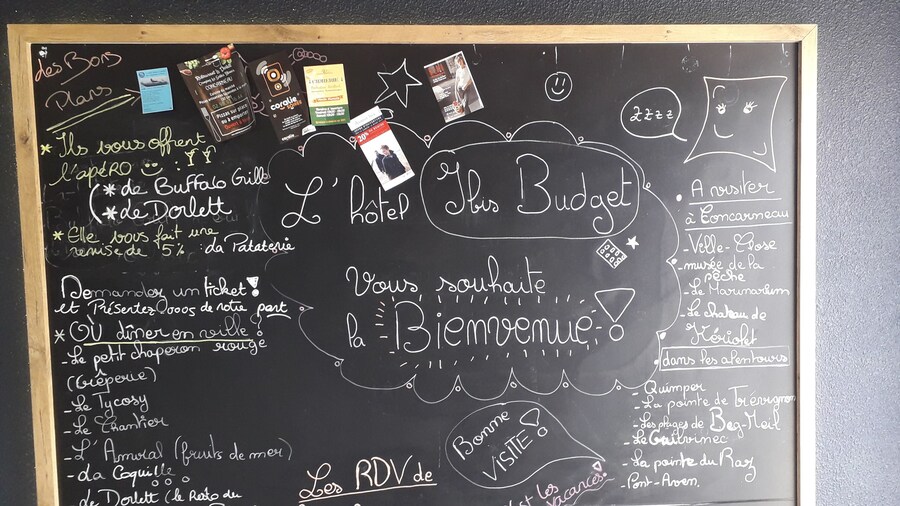 des Bons
Plans
* Ils vous offrent
l'apéRO
(* de Buffalo Grill
* de Dorlett
* Elle vous fait une
remise de 5% : La Pataterie
Demandez un ticket !
et Présentez vous de notre part
* OÙ dîner en ville ?
- Le petit chaperon rouge
(Crêperie)
- Le Tycosy
- Le Chantier
- L'Amiral (fruits de mer)
- La Coquille
de Dorlett (le Resto du
CONCARNEAU
coralie
20%
L'hôtel Ibis Budget
Vous souhaite
la Bienvenue !
Bonne
VISITE !
Les RDV de
les
vacances !
zzzz
A visiter
à Concarneau
- Ville-Close
- musée de la
pêche
- Le Marinarium
- Le chateau de
Kériolet
dans les alentours
- Quimper
- La pointe de Trévignon
- Les plages de Beg-Meil
- Le Guilvinec
- La pointe du Raz
- Pont-Aven